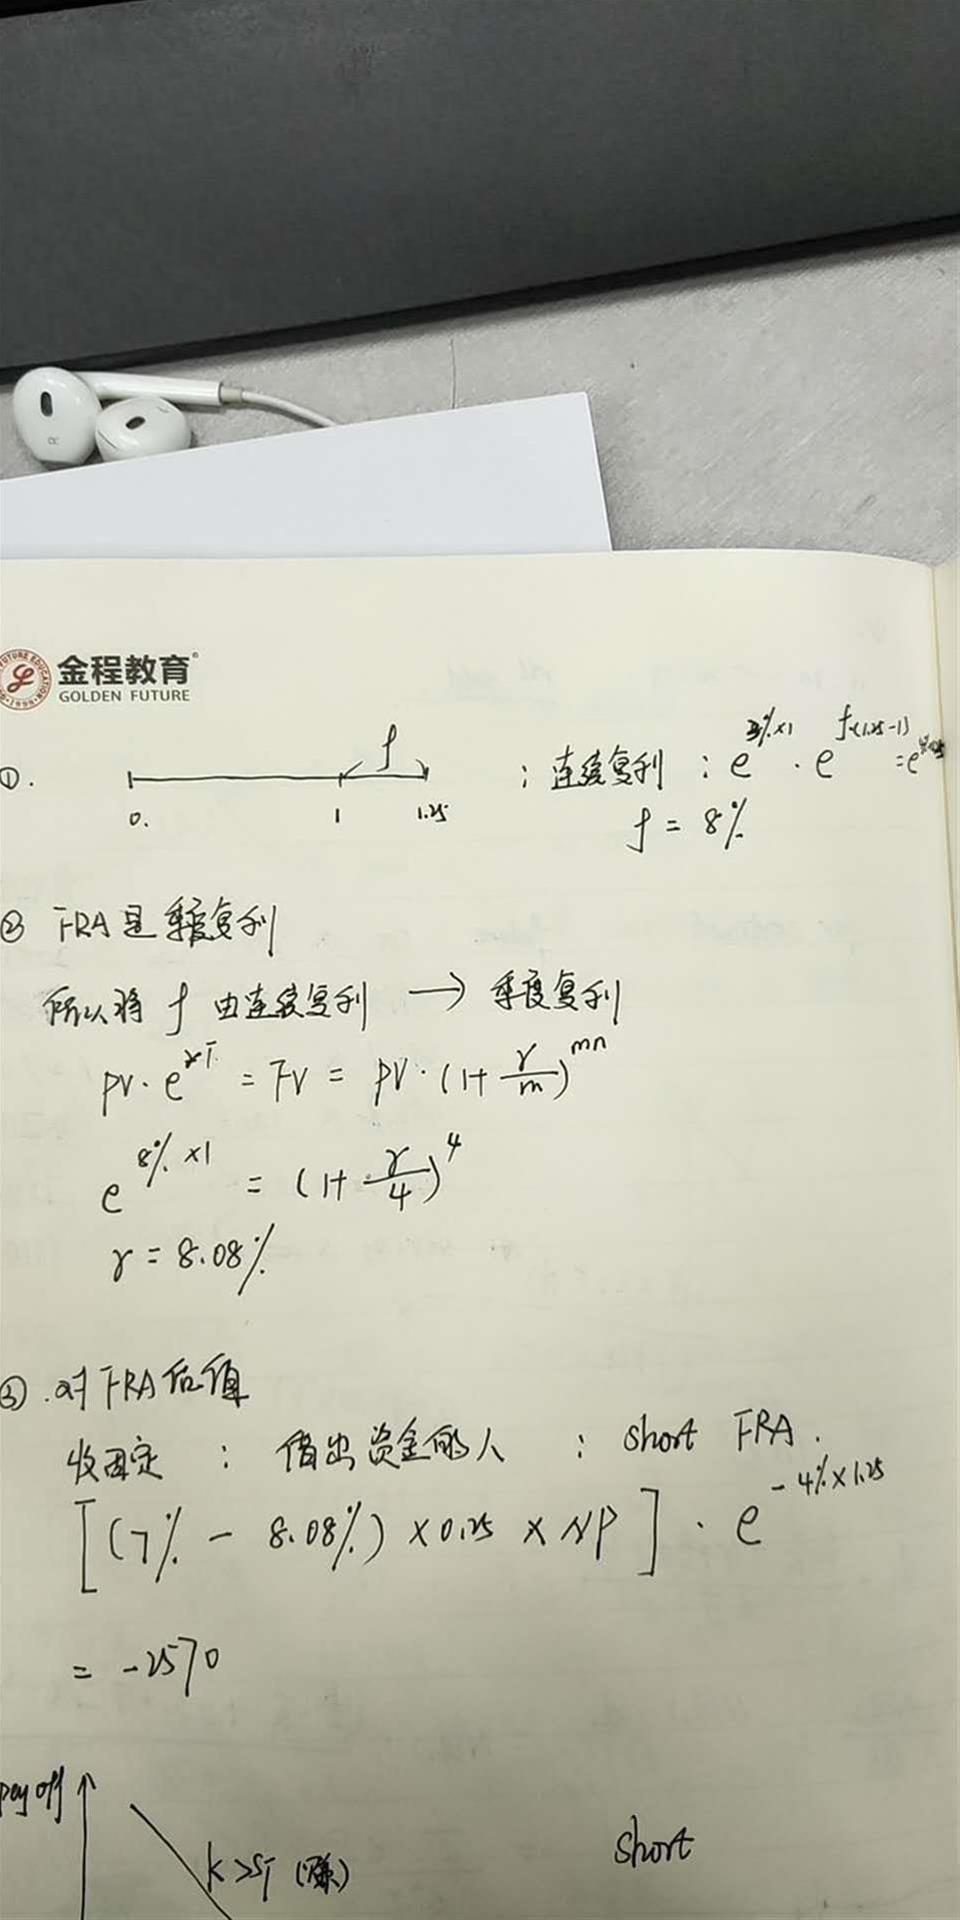 金程教育
GOLDEN FUTURE
①.
f
0.
1
1.25
; 连续复利 : e^{3%×1} · e^{f·(1.25-1)} = e
f = 8%
② FRA是季度复利
所以将 f 由连续复利 → 季度复利
PV·e^{rT} = FV = PV·(1+\frac{r}{m})^{mn}
e^{8%×1} = (1+\frac{r}{4})^4
r = 8.08%
③.对FRA估值
收固定 : 借出资金的人 : short FRA.
[(7% - 8.08%)×0.25×NP]·e^{-4%×1.25}
= -2570
pay off
K>S_T (赚)
short